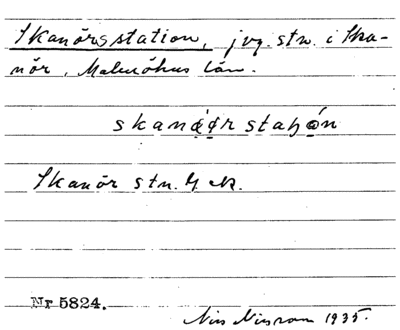 Skanörsstation, jvg. stn. i Ska-
nör, Malmöhus län.
Skanör stn. G. sk.
Nr 5824.
Nils Nilsson 1935.